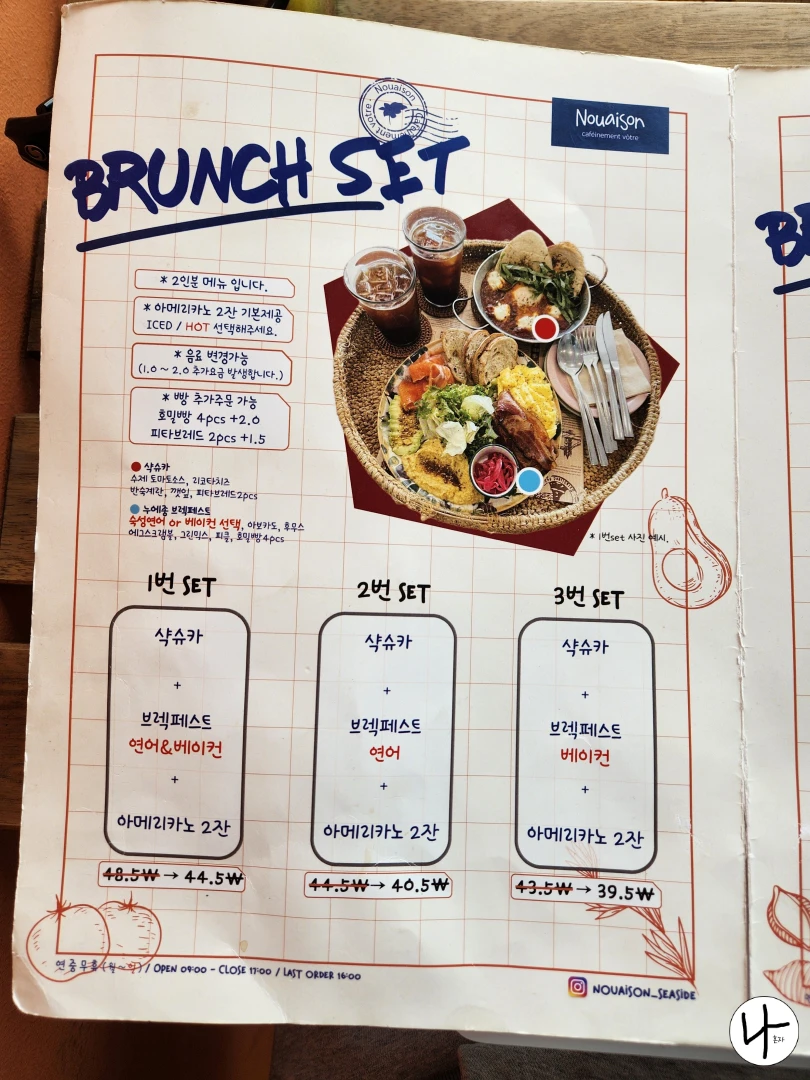 Nouaison
caféinement vôtre
Nouaison
caféinement vôtre
BRUNCH SET
* 2인분 메뉴 입니다.
* 아메리카노 2잔 기본제공
ICED / HOT 선택해주세요.
* 음료 변경가능
(1.0 ~ 2.0 추가요금 발생합니다.)
* 빵 추가주문 가능
호밀빵 4pcs +2.0
피타브레드 2pcs +1.5
샥슈카
수제 토마토소스, 리코타치즈
반숙계란, 깻잎, 피타브레드2pcs
누에종 브렉페스트
숙성연어 or 베이컨 선택, 아보카도, 후무스
에그스크램블, 그린믹스, 피클, 호밀빵4pcs
* 1번set 사진 예시.
1번 SET
샥슈카
+
브렉페스트
연어&베이컨
+
아메리카노 2잔
48.5₩ → 44.5₩
2번 SET
샥슈카
+
브렉페스트
연어
+
아메리카노 2잔
44.5₩ → 40.5₩
3번 SET
샥슈카
+
브렉페스트
베이컨
+
아메리카노 2잔
43.5₩ → 39.5₩
연중무휴 (월~일) / OPEN 09:00 - CLOSE 17:00 / LAST ORDER 16:00
NOUAISON_SEASIDE
B
나
혼자